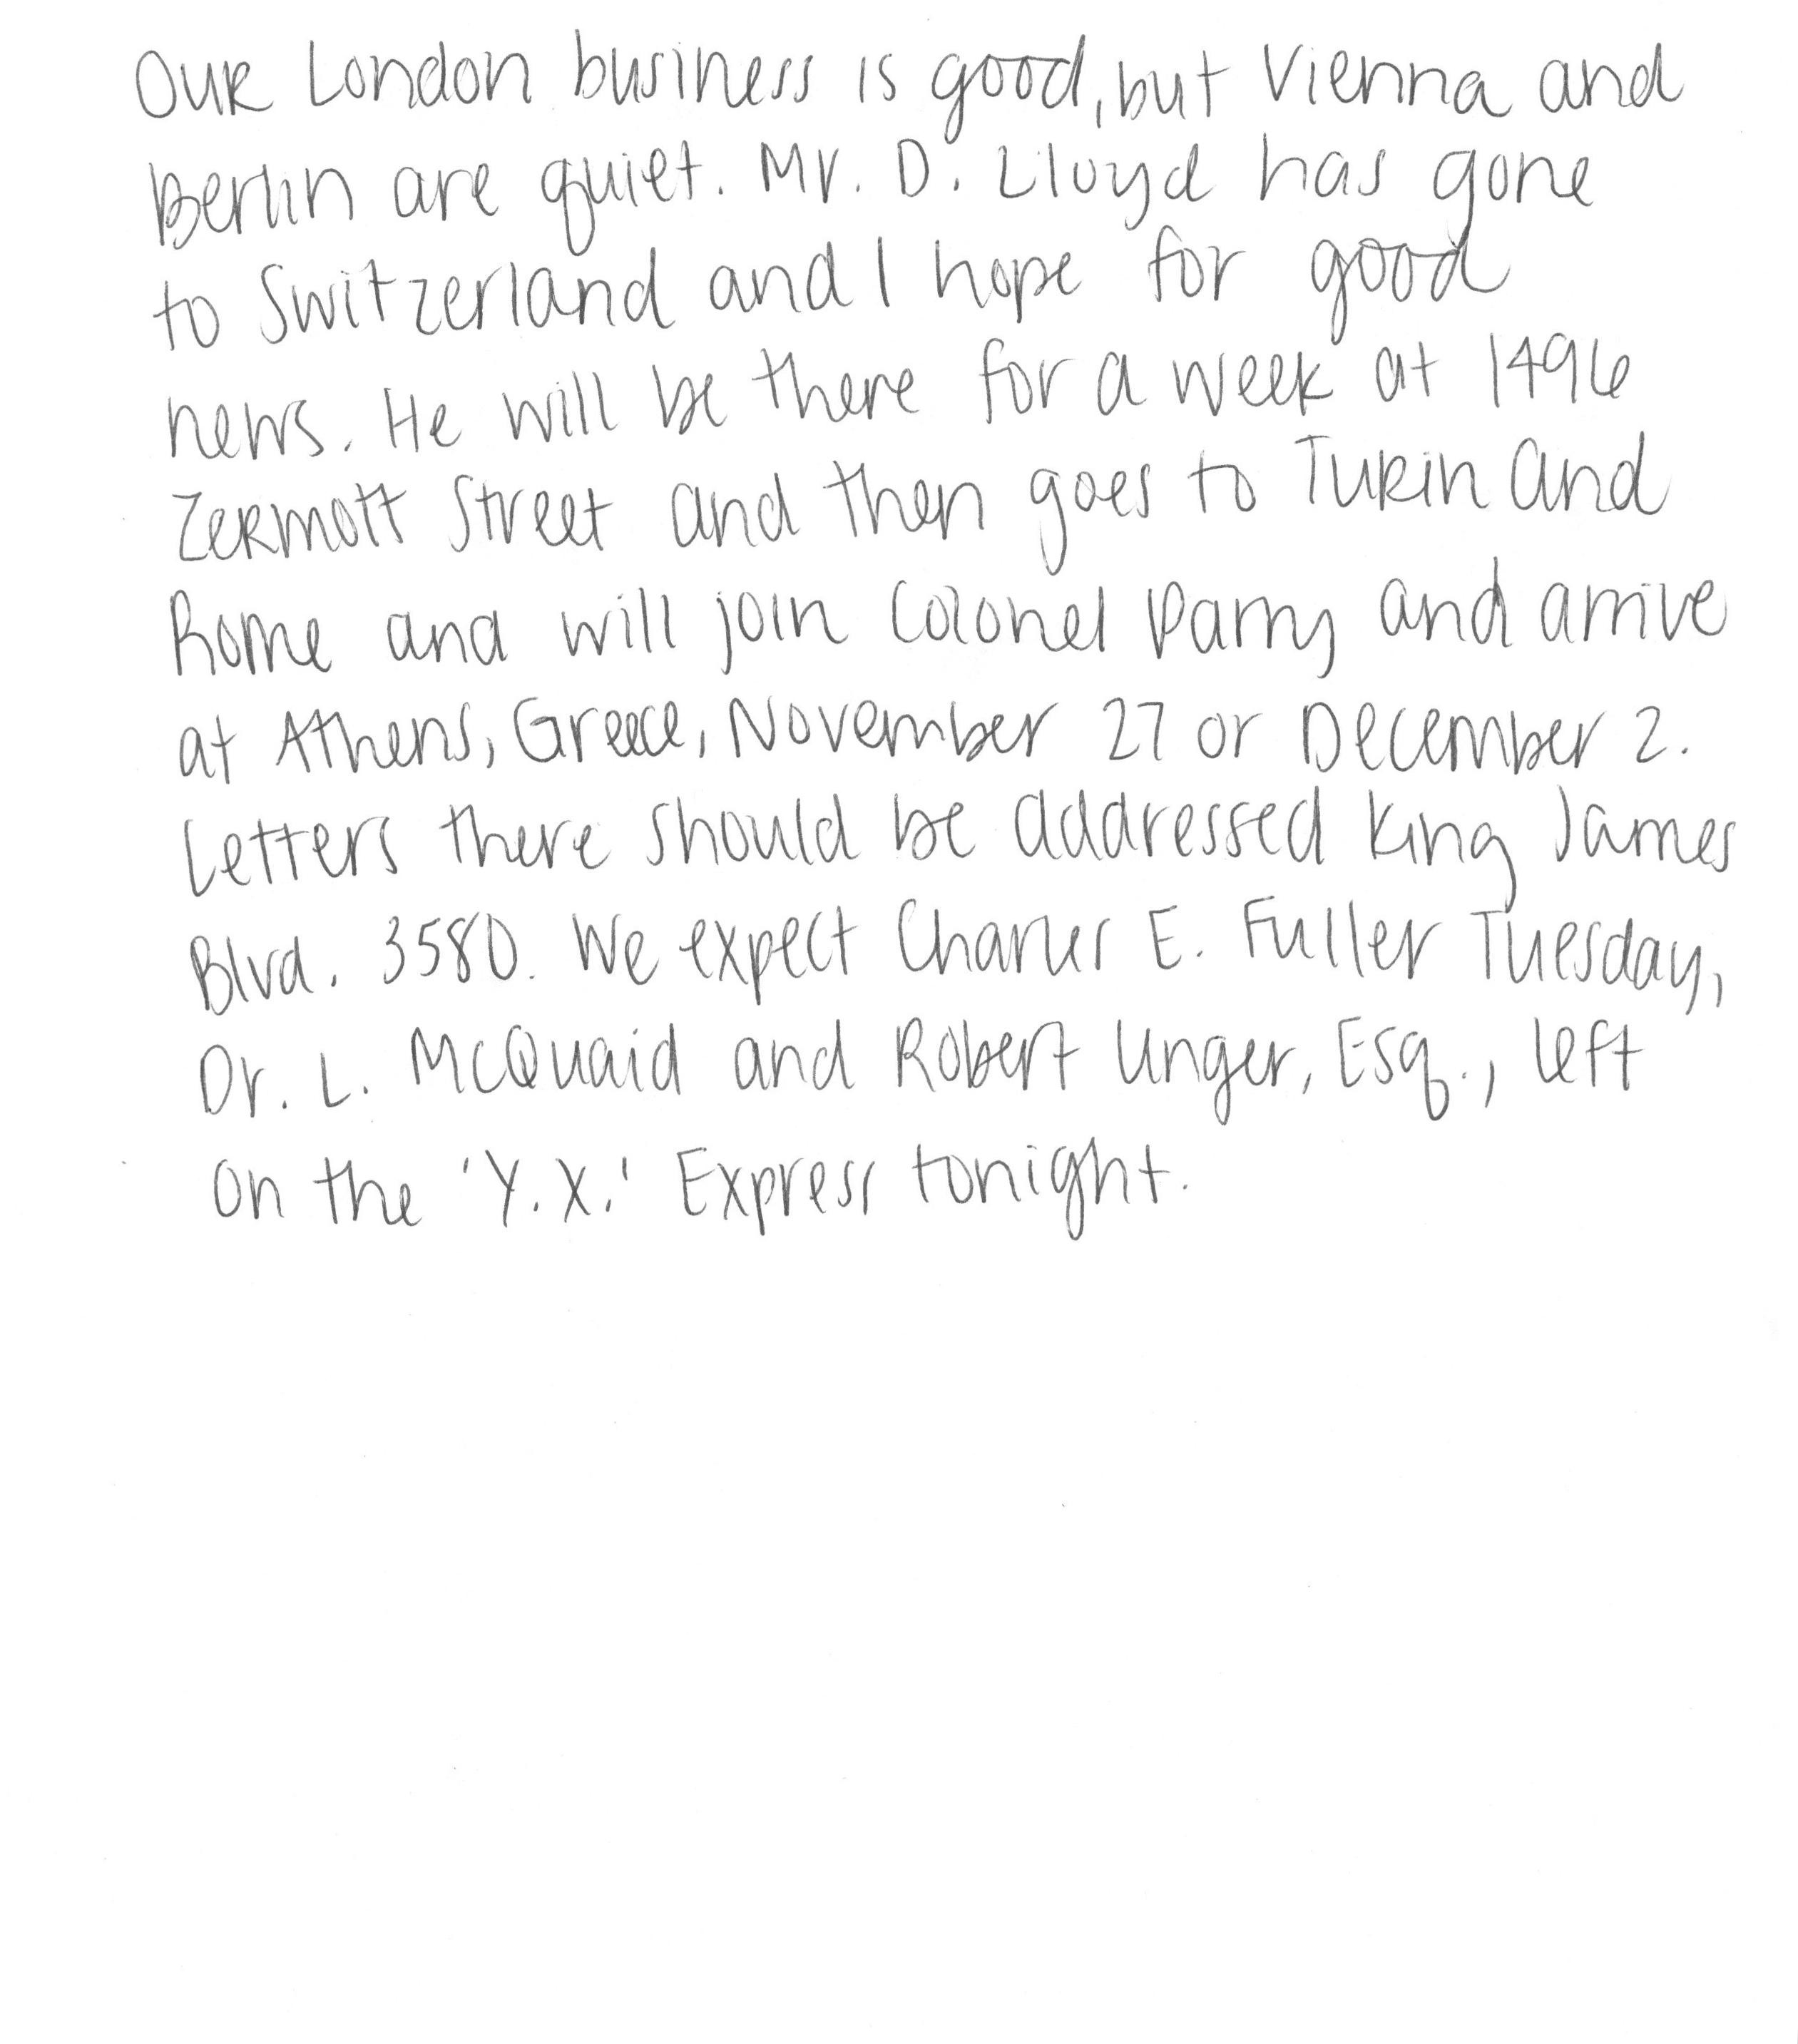 Our London business is good, but Vienna and
Berlin are quiet. Mr. D. Lloyd has gone
to Switzerland and I hope for good
news. He will be there for a week at 1496
Zermott Street and then goes to Turin and
Rome and will join Colonel Parry and arrive
at Athens, Greece, November 27 or December 2.
Letters there should be addressed King James
Blvd. 3580. We expect Charles E. Fuller Tuesday,
Dr. L. McQuaid and Robert Unger, Esq., left
on the 'Y.X.' Express tonight.